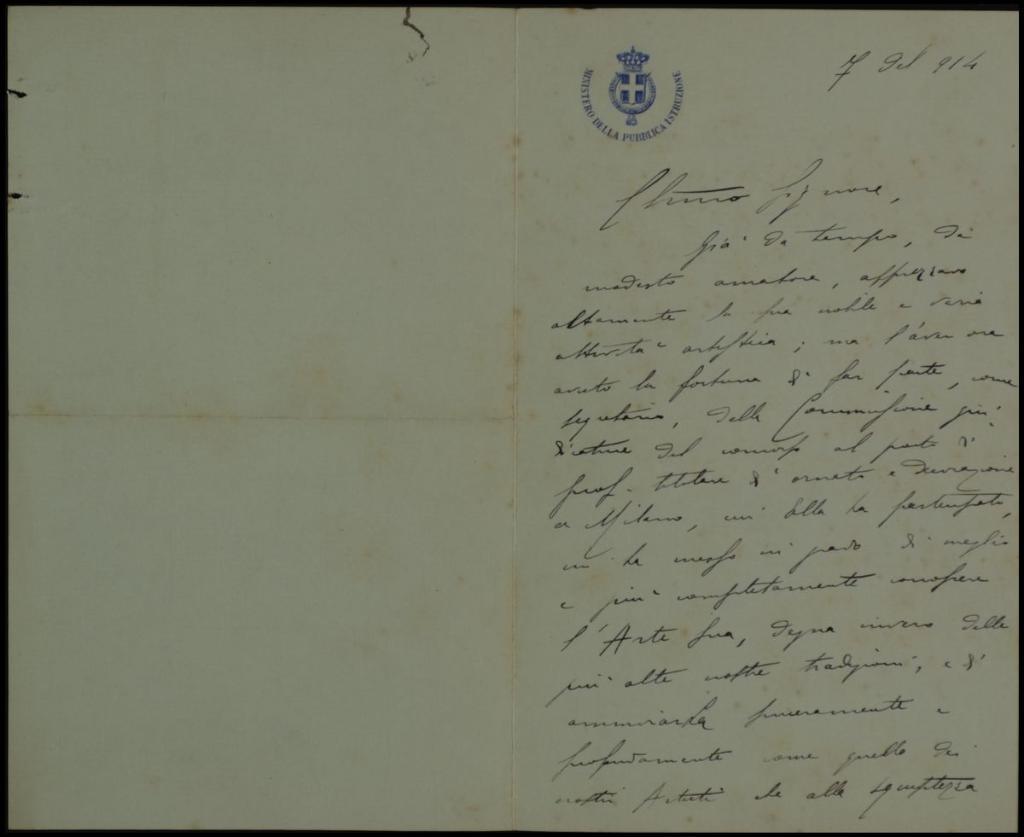 MINISTERO DELLA PUBBLICA ISTRUZIONE
7 del 914
Signore,
Già da tempo, da
modesto amatore, apprezzavo
altamente la sua nobile e varia
attività artistica; ma l'aver ora
avuto la fortuna di far parte, come
segretario, della Commissione giu-
dicatrice del concorso al posto di
prof. titolare d'ornato e decorazione
a Milano, cui Ella ha partecipato,
mi ha messo in grado di meglio
e più completamente conoscere
l'Arte Sua, degna invero delle
più alte nostre tradizioni, e di
ammirarla sinceramente e
profondamente come quella dei
nostri Artisti che alla squisitezza